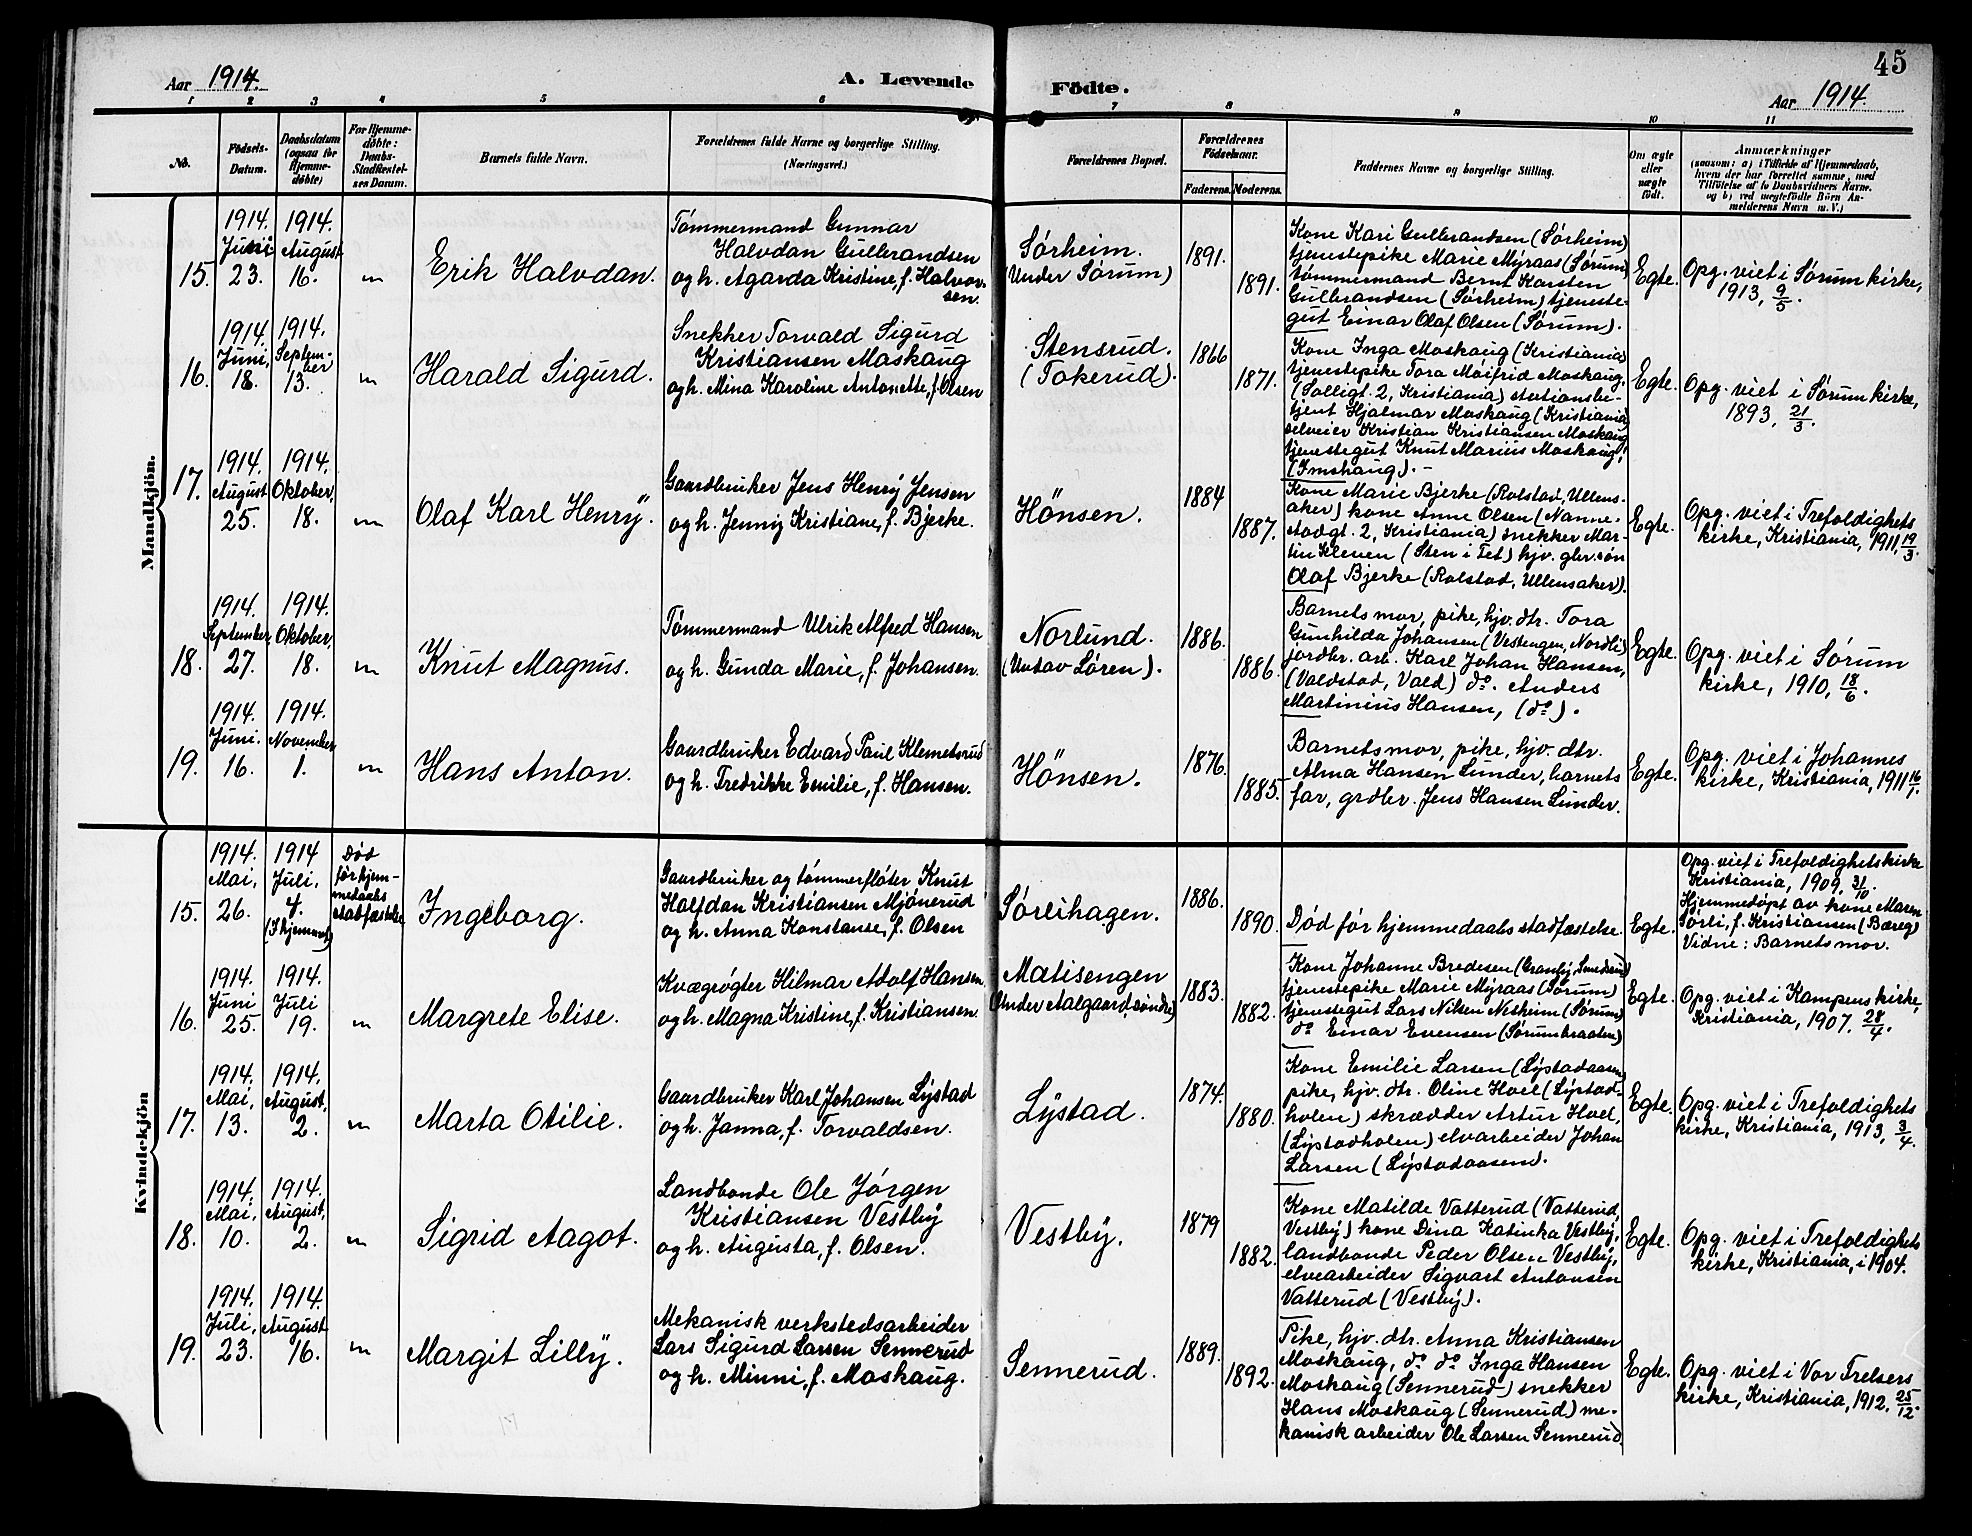 45
Aar 1914.
A. Levende
Födte.
Aar 1914.
1 2 3 4 5 6 7 8 9 10 11
No.
Födsels-
Datum.
Daabsdatum
(ogsaa for
Hjemme-
döbte)
For Hjemme-
döbte:
Daabs-
Stadfæstel-
ses Datum.
Barnets fulde Navn.
Forældrenes fulde Navne og borgerlige Stilling.
(Næringsvei.)
Forældrenes Bopæl.
Forældrenes
Födselsaar.
Faderens. Moderens.
Faddernes Navne og borgerlige Stilling.
Om ægte
eller
uægte
födt.
Anmærkninger
(saasom: a) i Tilfælde af Hjemmedaab,
hvem der har forrettet samme, med
Tilföielse af to Daabsvidners Navne.
og b) ved uægtefödte Börn An-
melderens Navn m. V.)
Mandkjön.
15.
1914.
Juni
23.
1914.
August
16.
"
Erik Halvdan.
Tømmermand Gunnar
Halvdan Gulbrandsen
og h. Agarda Kristine, f. Halvor-
sen.
Sørheim.
(Under Sørum)
1891.
1891.
Kone Kari Gulbrandsen (Sørheim)
tjenestepike Marie Myraas (Sørum)
tømmermand Bernt Karsten
Gulbrandsen (Sørheim) tjeneste-
gut Einar Olaf Olsen (Sørum).
Egte.
Opg. viet i Sørum kirke,
1913, 9/5.
16.
1914.
Juni,
18.
1914.
Septem-
ber
13.
"
Harald Sigurd.
Snekker Torvald Sigurd
Kristiansen Moskaug
og h. Mina Karoline Antonette, f. Olsen
Stensrud.
(Tokerud).
1866
1871.
Kone Inga Moskaug (Kristiania)
tjenestepike Tora Maifrid Moskaug,
(Solligt. 2, Kristiania) stationsbe-
tjent Hjalmar Moskaug (Kristiania)
selveier Kristian Kristiansen Moskaug
tjenestegut Knut Marius Moskaug,
(Imshaug). -
Egte.
Opg. viet i Sørum kirke,
1893, 21/3.
17.
1914.
August
25.
1914.
Oktober,
18.
"
Olaf Karl Henry.
Gaardbruker Jens Henry Jensen
og h. Jenny Kristiane, f. Bjerke.
Hönsen.
1884
1887.
Kone Marie Bjerke (Rolstad, Ullens-
aker) kone Anne Olsen (Nanne-
stadgt. 2, Kristiania) snekker Mar-
tin Kleven (Sten i Fet) hjv. gbr. søn
Olaf Bjerke (Rolstad, Ullensaker).
Egte.
Opg. viet i Trefoldighets
kirke, Kristiania, 1911, 19/3.
18.
1914.
September,
27.
1914.
Oktober,
18.
"
Knut Magnus.
Tømmermand Ulrik Alfred Hansen
og h. Gunda Marie, f. Johansen.
Norlund.
(Utav Løren).
1886.
1886.
Barnets mor, pike, hjv. dtr. Tora
Gunhilda Johansen (Vestengen, Nordli)
jordbr. arb. Karl Johan Hansen,
(Valdstad, Vald) do. Anders
Martinius Hansen, (do).
Egte.
Opg. viet i Sørum
kirke, 1910, 18/6.
19.
1914.
Juni.
16.
1914.
November
1.
"
Hans Anton.
Gaardbruker Edvard Paul Klemetsrud
og h. Fredrikke Emilie, f. Hansen.
Hönsen.
1876.
1885.
Barnets mor, pike, hjv. dtr.
Alma Hansen Sunder, barnets
far, grdbr. Jens Hansen Sunder.
Egte.
Opg. viet i Johannes
kirke, Kristiania, 1911 16/1.
Kvindekjön
15.
1914.
Mai,
26.
1914
Juli,
4.
(I hjemmet)
Død
før hjem-
medaabs
stadfæstelse
Ingeborg.
Gaardbruker og tømmerfløter Knut
Halfdan Kristiansen Mjönerud
og h. Anna Konstanse, f. Olsen
Sørlihagen.
1886.
1890.
Død før hjemmedaabs stadfæstelse.
Egte.
Opg. viet i Trefoldighets kirke
Kristiania, 1909, 31/10.
Hjemmedøpt av kone Maren
Sørli, f. Kristiansen (Bæreg)
Vidne: Barnets mor.
16.
1914.
Juni
25.
1914.
Juli
19.
"
Margrete Elise.
Kvægrøgter Hilmar Adolf Hansen
og h. Magna Kristine, f. Kristiansen.
Matisengen
(Under Aalgaard, søndre)
1883.
1882.
Kone Johanne Bredesen (Granby, Smedsrud)
tjenestepike Marie Myraas (Sørum)
tjenestegut Lars Nilsen Nesheim (Sørum)
do Einar Evensen (Sørumbraaten)
Egte.
Opg. viet i Kampens kirke,
Kristiania, 1907. 28/4.
17.
1914.
Mai,
13.
1914.
August,
2.
"
Marta Otilie.
Gaardbruker Karl Johansen Lystad
og h. Janna, f. Torvaldsen.
Lystad.
1874.
1880.
Kone Emilie Larsen (Lystadaasen)
pike, hjv. dtr. Oline Hoel (Lystad-
holen) skrædder Artur Hoel,
(Lystadholen) elvarbeider Johan
Larsen (Lystadaasen).
Egte.
Opg. viet i Trefoldighets
kirke, Kristiania, 1913, 3/4.
18.
1914.
Mai,
10.
1914.
August,
2.
"
Sigrid Aagot.
Landbonde Ole Jørgen
Kristiansen Vestby
og h. Augusta, f. Olsen.
Vestby.
1879
1882.
Kone Matilde Vatterud (Vatterud,
Vestby) kone Dina Katinka Vestby,
landbonde Peder Olsen Vestby,
elvearbeider Sigvart Antonsen
Vatterud (Vestby).
Egte.
Opg. viet i Trefoldighets
kirke, Kristiania, i 1904.
19.
1914.
Juli,
23.
1914.
August
16.
"
Margit Lilly.
Mekanisk verkstedsarbeider
Lars Sigurd Larsen Sennerud
og h. Minni, f. Moskaug.
Sennerud.
1889.
1892.
Pike, hjv. dtr. Anna Kristiansen
Moskaug, do do Inga Hansen
Moskaug (Sennerud) snekker
Hans Moskaug (Sennerud) me-
kanisk arbeider Ole Larsen Sennerud.
Egte.
Opg. viet i Vor Frelsers
kirke, Kristiania, 1912. 25/12.